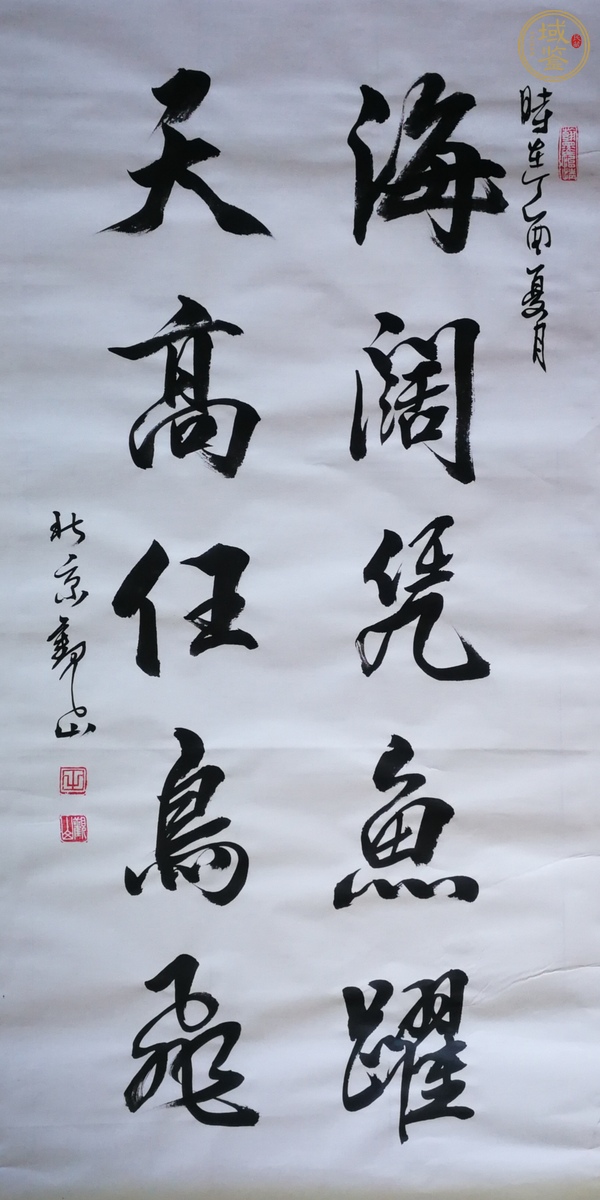 時在丁酉夏月
海闊凭魚躍
天高任鳥飛
北京觀山
觀山
域鉴